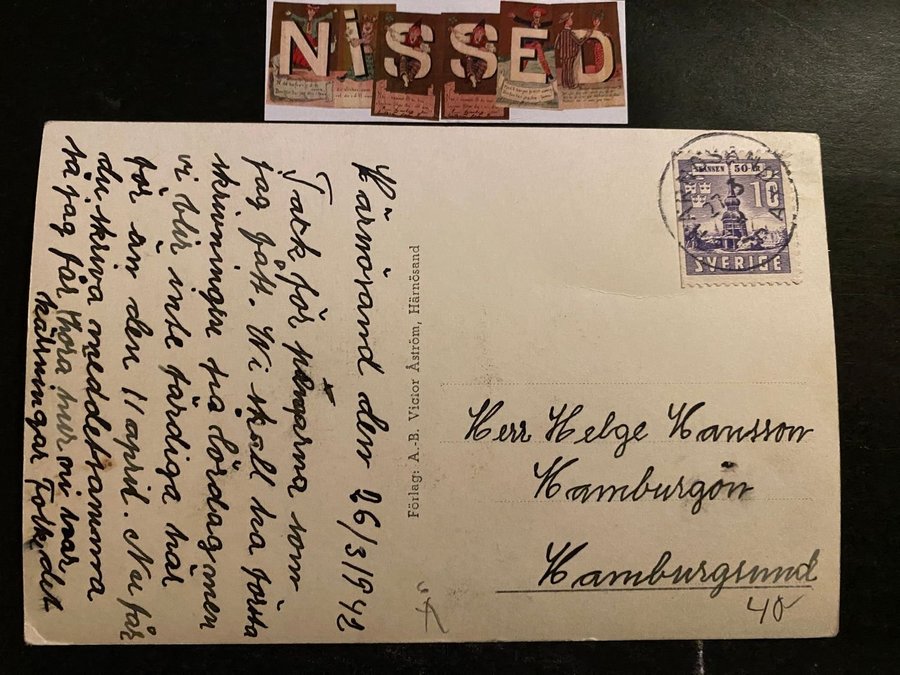 NISSED
SKANSEN 50 ÅR
10
SVERIGE
HÄRNÖSAND
27 3
Härnösand den 26/3 1942
Tack för pengarna som
jag fått. Vi skall ha första
skrivningen på Lördag, men
vi blir inte färdiga här
för än den 11 april. Nu får
du skriva meddetsamma
så jag får höra hur ni mår,
Folke, det
Förlag: A.-B. Victor Åström, Härnösand
Herr Helge Hansson
Hamburgön
Hamburgsund
40